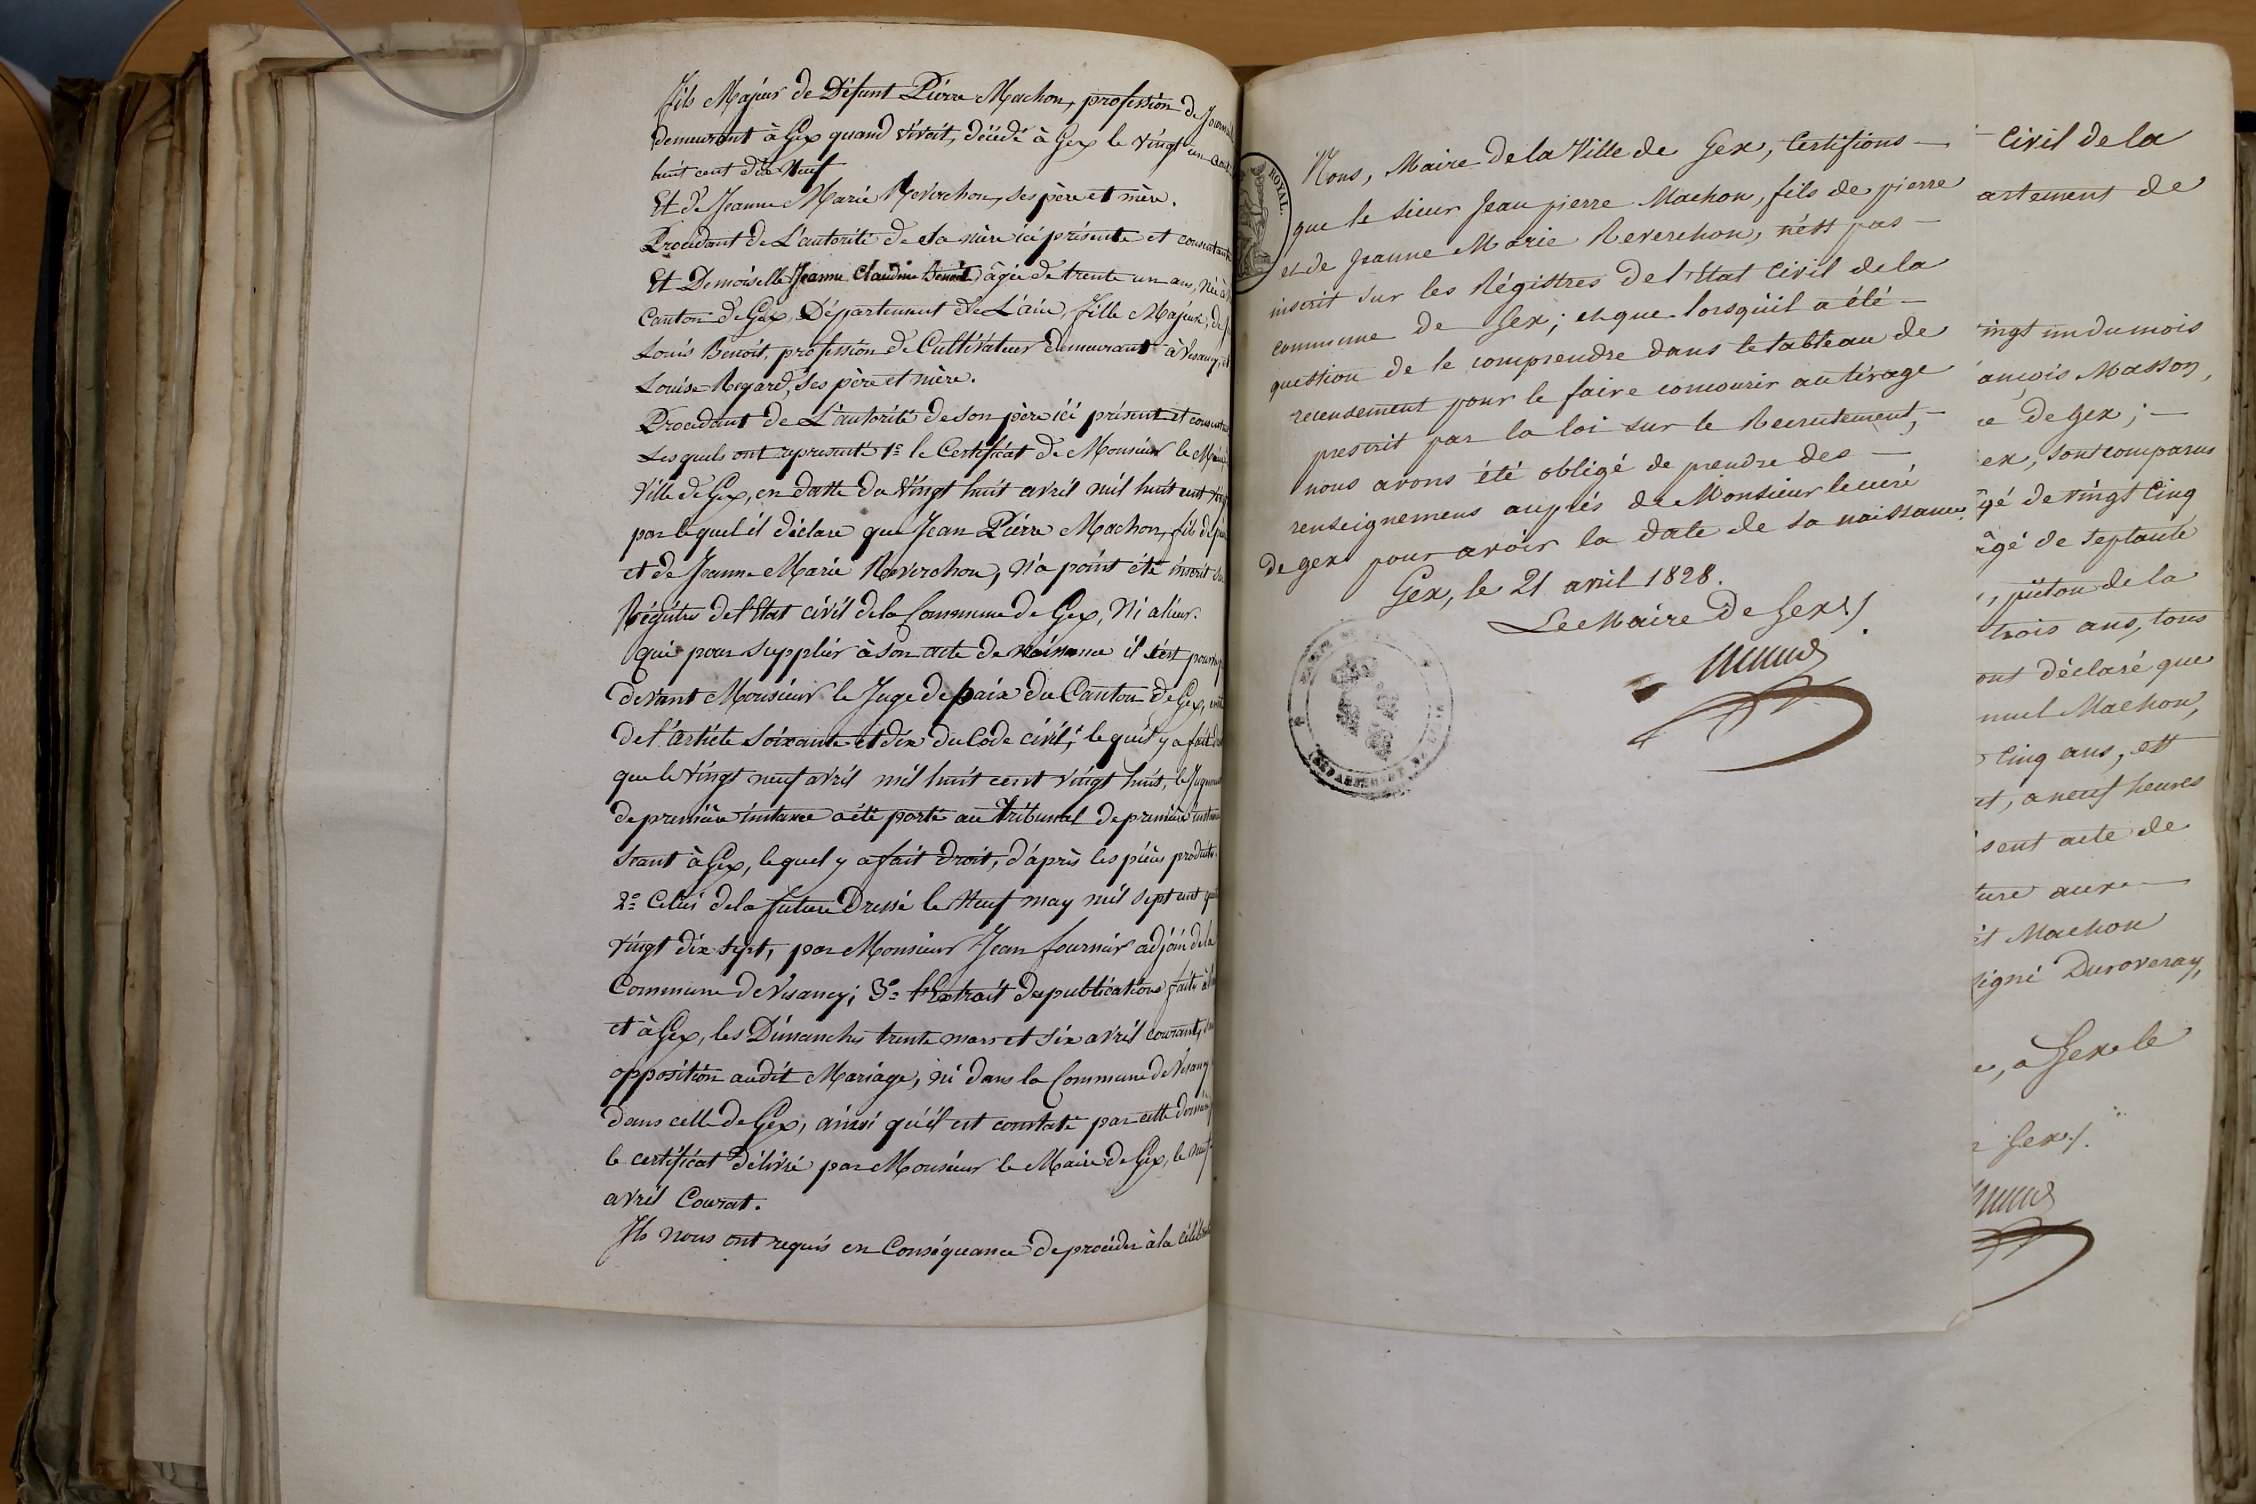 fils Majeur de Défunt Pierre Machon, profession de
demeurant à Gex quand vivait, décédé à Gex le vingt un
huit cent dix Neuf
Et de Jeanne Marie Reverchon, ses père et mère.
Procédant de L'autorité de sa mère ici présente et consentante
Et Demoiselle Jeanne Claudine Benoit âgée de trente un ans, Née à
Canton de Gex, Département de L'ain, fille Majeure, de
Louis Benoit, profession de Cultivateur demeurant à Vesancy, et
Louise Regard, ses père et mère.
Procédant de L'autorité de son père ici présent et
Lesquels ont représenté 1º le Certificat de Monsieur le
Ville de Gex, en datte du vingt huit avril mil huit cent
par lequel il déclare que Jean Pierre Machon, fils de
et de Jeanne Marie Reverchon, n'a point été inscrit
Régitre de l'Etat civil de la Commune de Gex, Ni alieur.
qui pour supplier à son acte de naissance il s'est
devant Monsieur le Juge de paix du Canton de Gex,
de l'article soixante et dix du Code civil; lequel y a fait
que le vingt neuf avril mil huit cent vingt huit, le
de première instance a été porté au tribunal de première
séant à Gex, lequel y a fait Droit, d'après les pièces
2º Celui de la future Dressé le Neuf may mil sept cent
vingt dix sept, par Monsieur Jean fournier adjoin de la
Commune de Vesancy; 3º l'Extrait des publications faite à
et à Gex, les Dimanches trente mars et six avril courant,
opposition audit Mariage, ni dans la Commune de Vesancy
dans celle de Gex, ainsi qu'il est constaté par cette
le certificat délivré par Monsieur le Maire de Gex, le
avril Courat.
Ils nous ont requis en Conséquance de procéder à la
ROYAL.
Nous, Maire de la Ville de Gex, Certifions
que le sieur Jean pierre Machon, fils de pierre
et de Jeanne Marie Reverchon, n'est pas
inscrit sur les Régistres de l'Etat Civil de la
commune de Gex; et que lorsqu'il a été
question de le comprendre dans le tableau de
recensement pour le faire concourir au tirage
prescrit par la loi sur le Recrutement,
nous avons été obligé de prendre des
renseignemens auprés de Monsieur le curé
de gex pour avoir la date de sa naissance.
Gex, le 21 avril 1828.
Le Maire de Gex
Civil de la
artement de
ingt un du mois
ançois Masson,
de gex;
ex, sont comparus
gé de vingt Cinq
âgé de septante
piéton de la
trois ans, tous
ont déclaré que
muel Machon,
Cinq ans, est
et, a neuf heures
sent acte de
ture aux
it Machon
signé Duroveray,
e, a Gex le
Gex